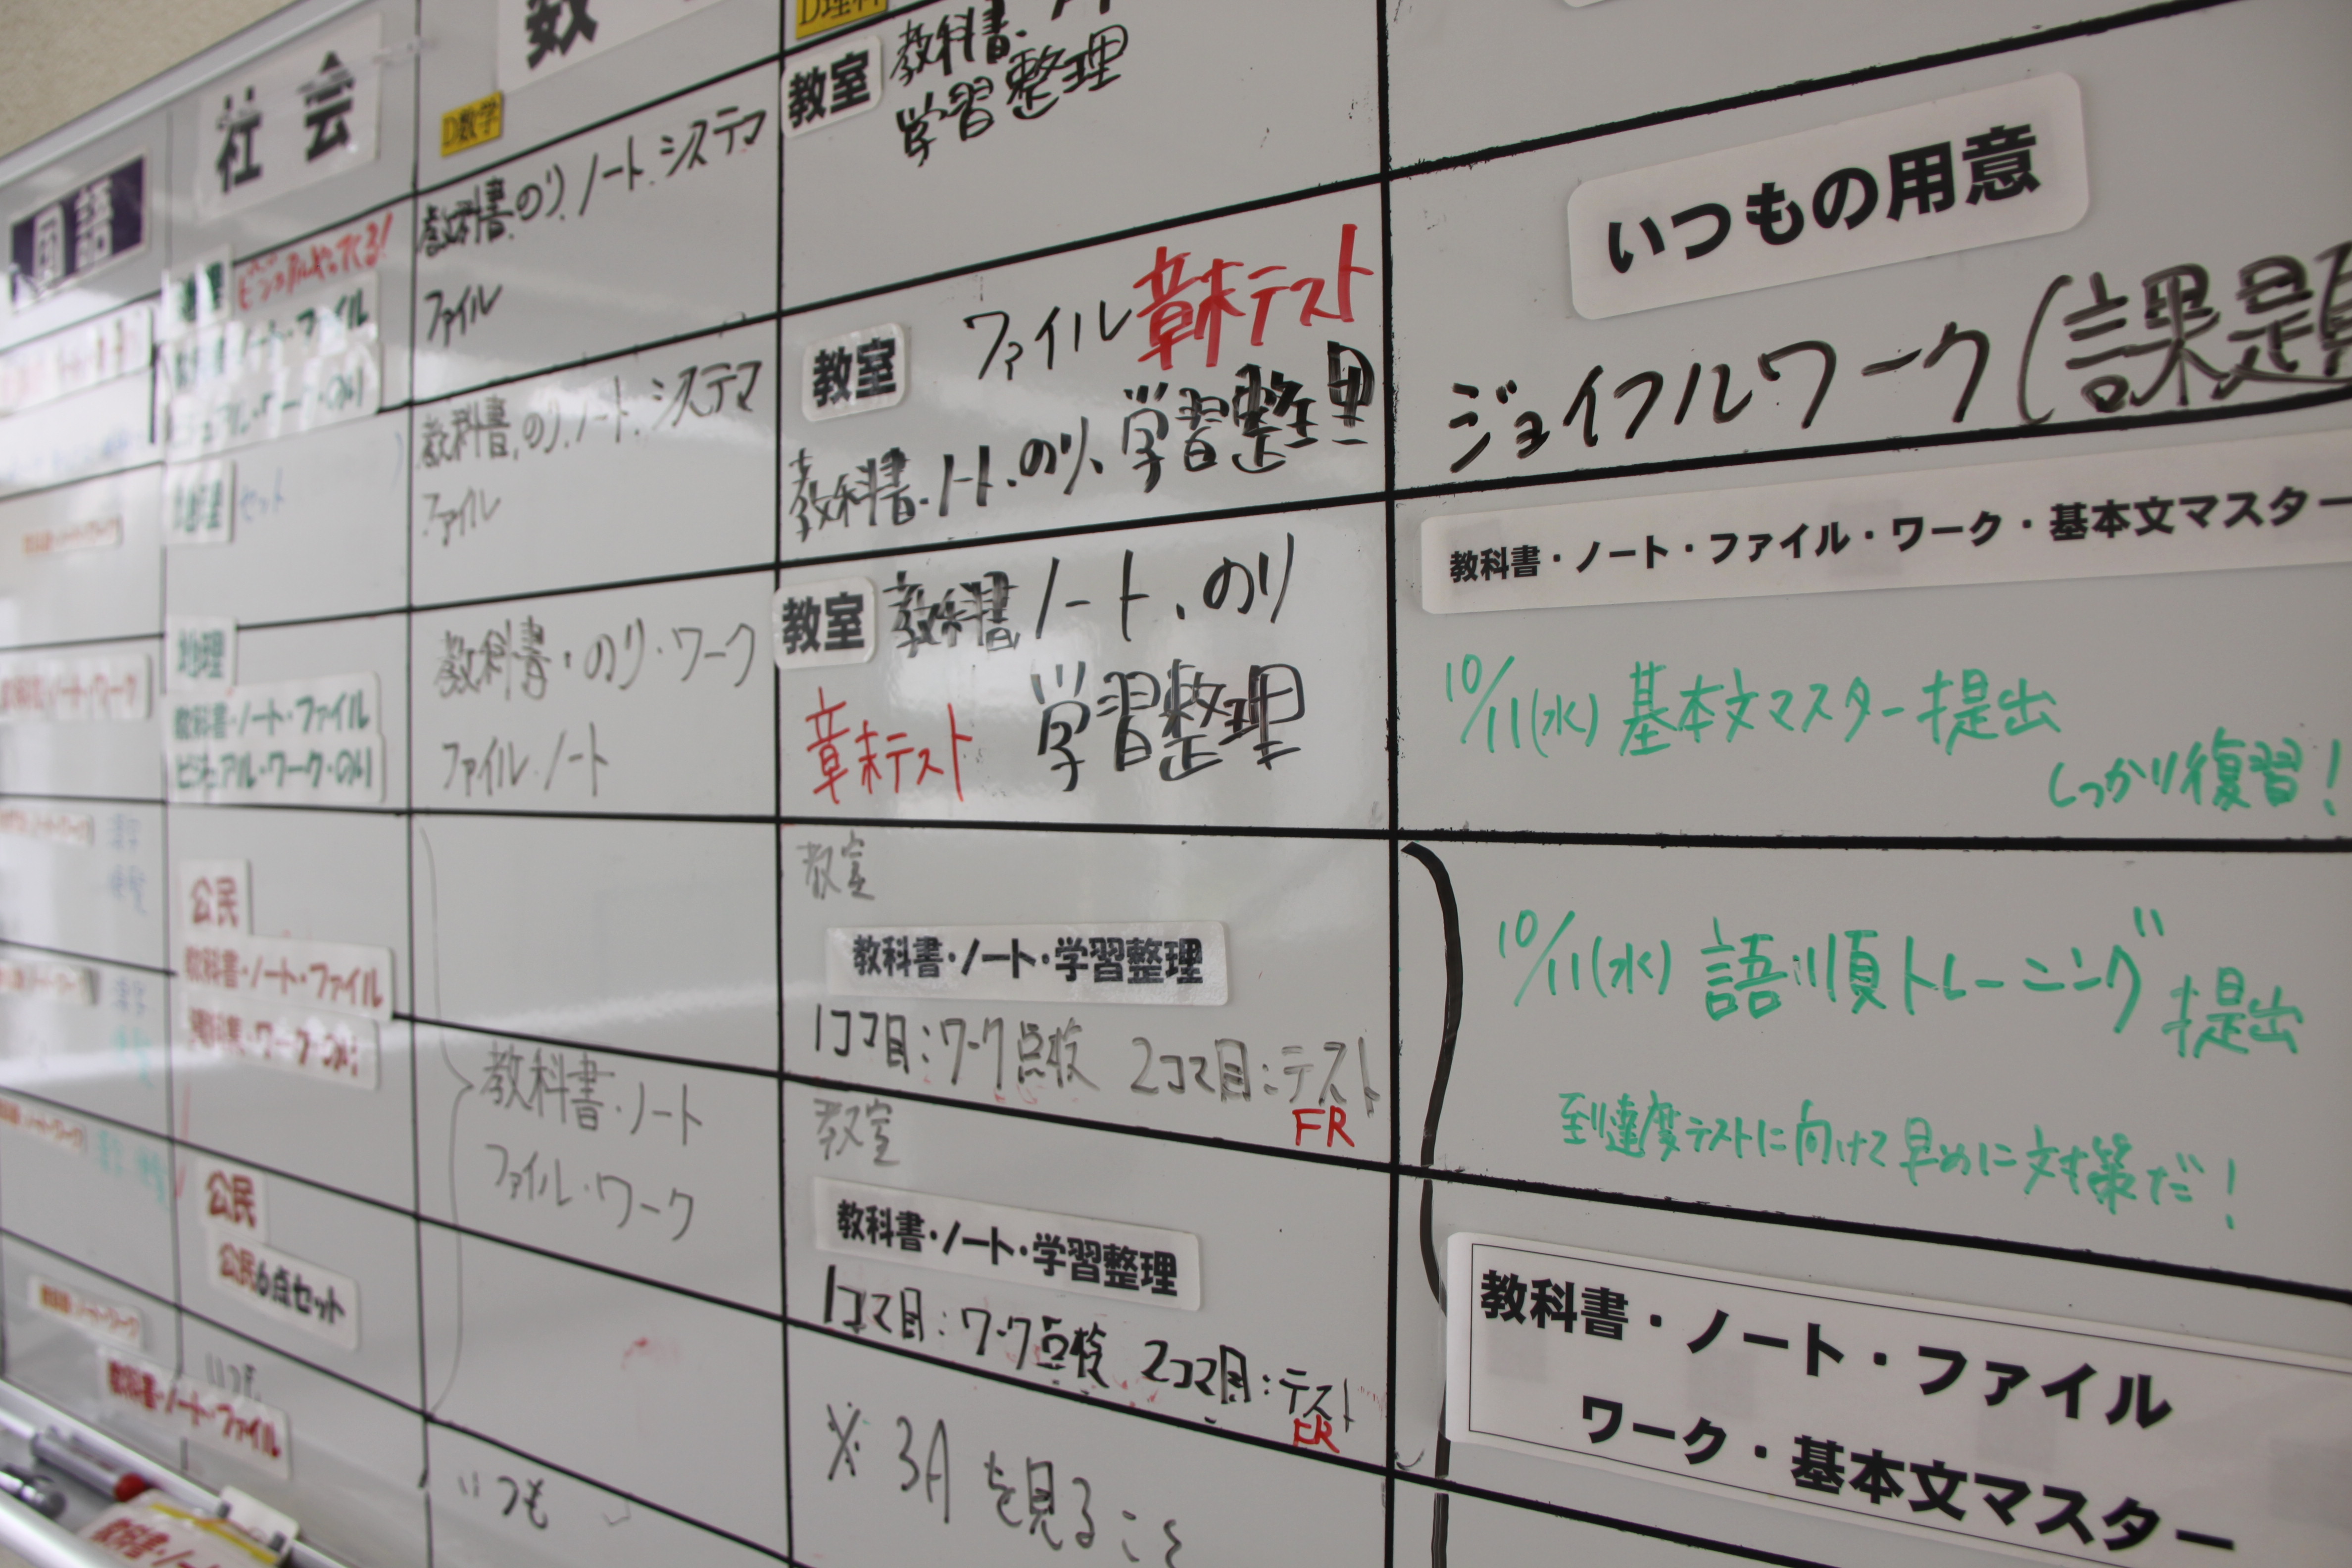 国語
社会
数
D数学
D理科
教室
教科書.
学習整理
いつもの用意
ジョイフルワーク(課題
ビジュアルやってくる!
ノート・ファイル
教科書.のり.ノート.システマ
ファイル
教室
ファイル 章末テスト
教科書.ノート.のり、学習整理
教科書・ノート・ファイル・ワーク・基本文マスター
セット
教科書.のり.ノート.システマ
ファイル
教室
教科書 ノート、のり
章末テスト
学習整理
10/11(水) 基本文マスター提出
しっかり復習!
地理
教科書・ノート・ファイル
ビジュアル・ワーク・のり
教科書・のり・ワーク
ファイル.ノート
教室
教科書・ノート・学習整理
1コマ目:ワーク点検 2コマ目:テスト
FR
10/11(水) 語順トレーニング 提出
到達度テストに向けて早めに対策だ!
公民
教科書・ノート・ファイル
教科書・ノート
ファイル・ワーク
教室
教科書・ノート・学習整理
1コマ目:ワーク点検 2コマ目:テスト
FR
教科書・ノート・ファイル
ワーク・基本文マスター
公民
公民6点セット
教科書・ノート・ファイル
いつも
※ 3Aを見ること